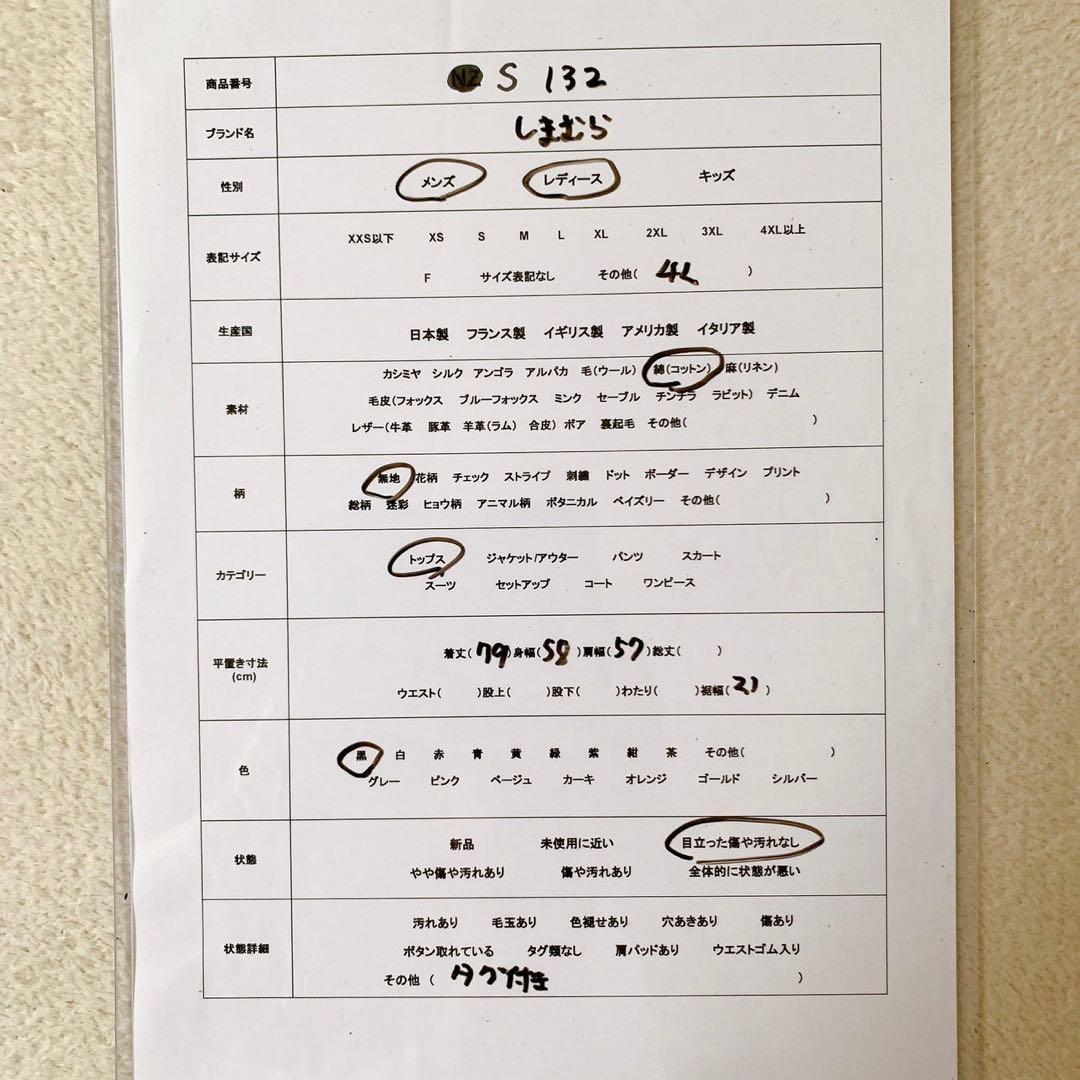 商品番号 NZ S 132
ブランド名 しまむら
性別 メンズ レディース キッズ
表記サイズ
XXS以下 XS S M L XL 2XL 3XL 4XL以上
F サイズ表記なし その他( 4L )
生産国 日本製 フランス製 イギリス製 アメリカ製 イタリア製
素材
カシミヤ シルク アンゴラ アルパカ 毛(ウール) 綿(コットン) 麻(リネン)
毛皮(フォックス ブルーフォックス ミンク セーブル チンチラ ラビット) デニム
レザー(牛革 豚革 羊革(ラム) 合皮) ボア 裏起毛 その他( )
柄
無地 花柄 チェック ストライプ 刺繍 ドット ボーダー デザイン プリント
総柄 迷彩 ヒョウ柄 アニマル柄 ボタニカル ペイズリー その他( )
カテゴリー
トップス ジャケット/アウター パンツ スカート
スーツ セットアップ コート ワンピース
平置き寸法
(cm)
着丈( 79 )身幅( 58 )肩幅( 57 )総丈( )
ウエスト( )股上( )股下( )わたり( )裾幅( 21 )
色
黒 白 赤 青 黄 緑 紫 紺 茶 その他( )
グレー ピンク ベージュ カーキ オレンジ ゴールド シルバー
状態
新品 未使用に近い 目立った傷や汚れなし
やや傷や汚れあり 傷や汚れあり 全体的に状態が悪い
状態詳細
汚れあり 毛玉あり 色褪せあり 穴あきあり 傷あり
ボタン取れている タグ類なし 肩パッドあり ウエストゴム入り
その他 ( タグ付き )